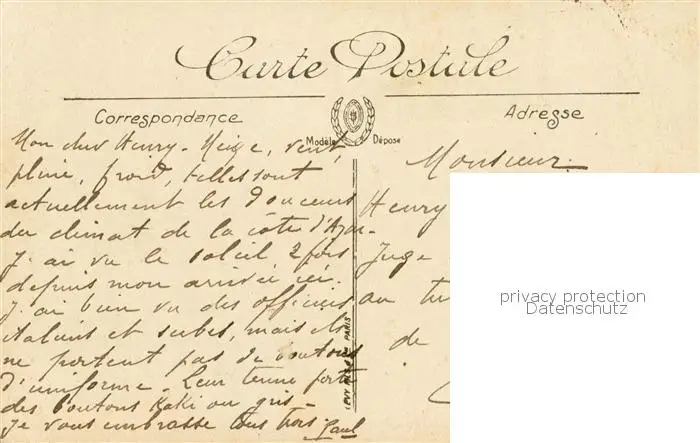 Carte Postale
Correspondance
Adresse
Modèle Déposé
Mon cher Henry - Neige, vent,
pluie, froid, telles sont
actuellement les douceurs
du climat de la côte d'Azur.
J'ai vu le soleil 2 fois
depuis mon arrivée ici.
J'ai bien vu des officiers
italiens et serbes, mais ils
ne portent pas de boutons
d'uniforme. Leur tenue porte
des boutons Kaki ou gris -
Je vous embrasse tous trois. Paul
Monsieur
Henry
Juge
au
de
PARIS
privacy protection
Datenschutz